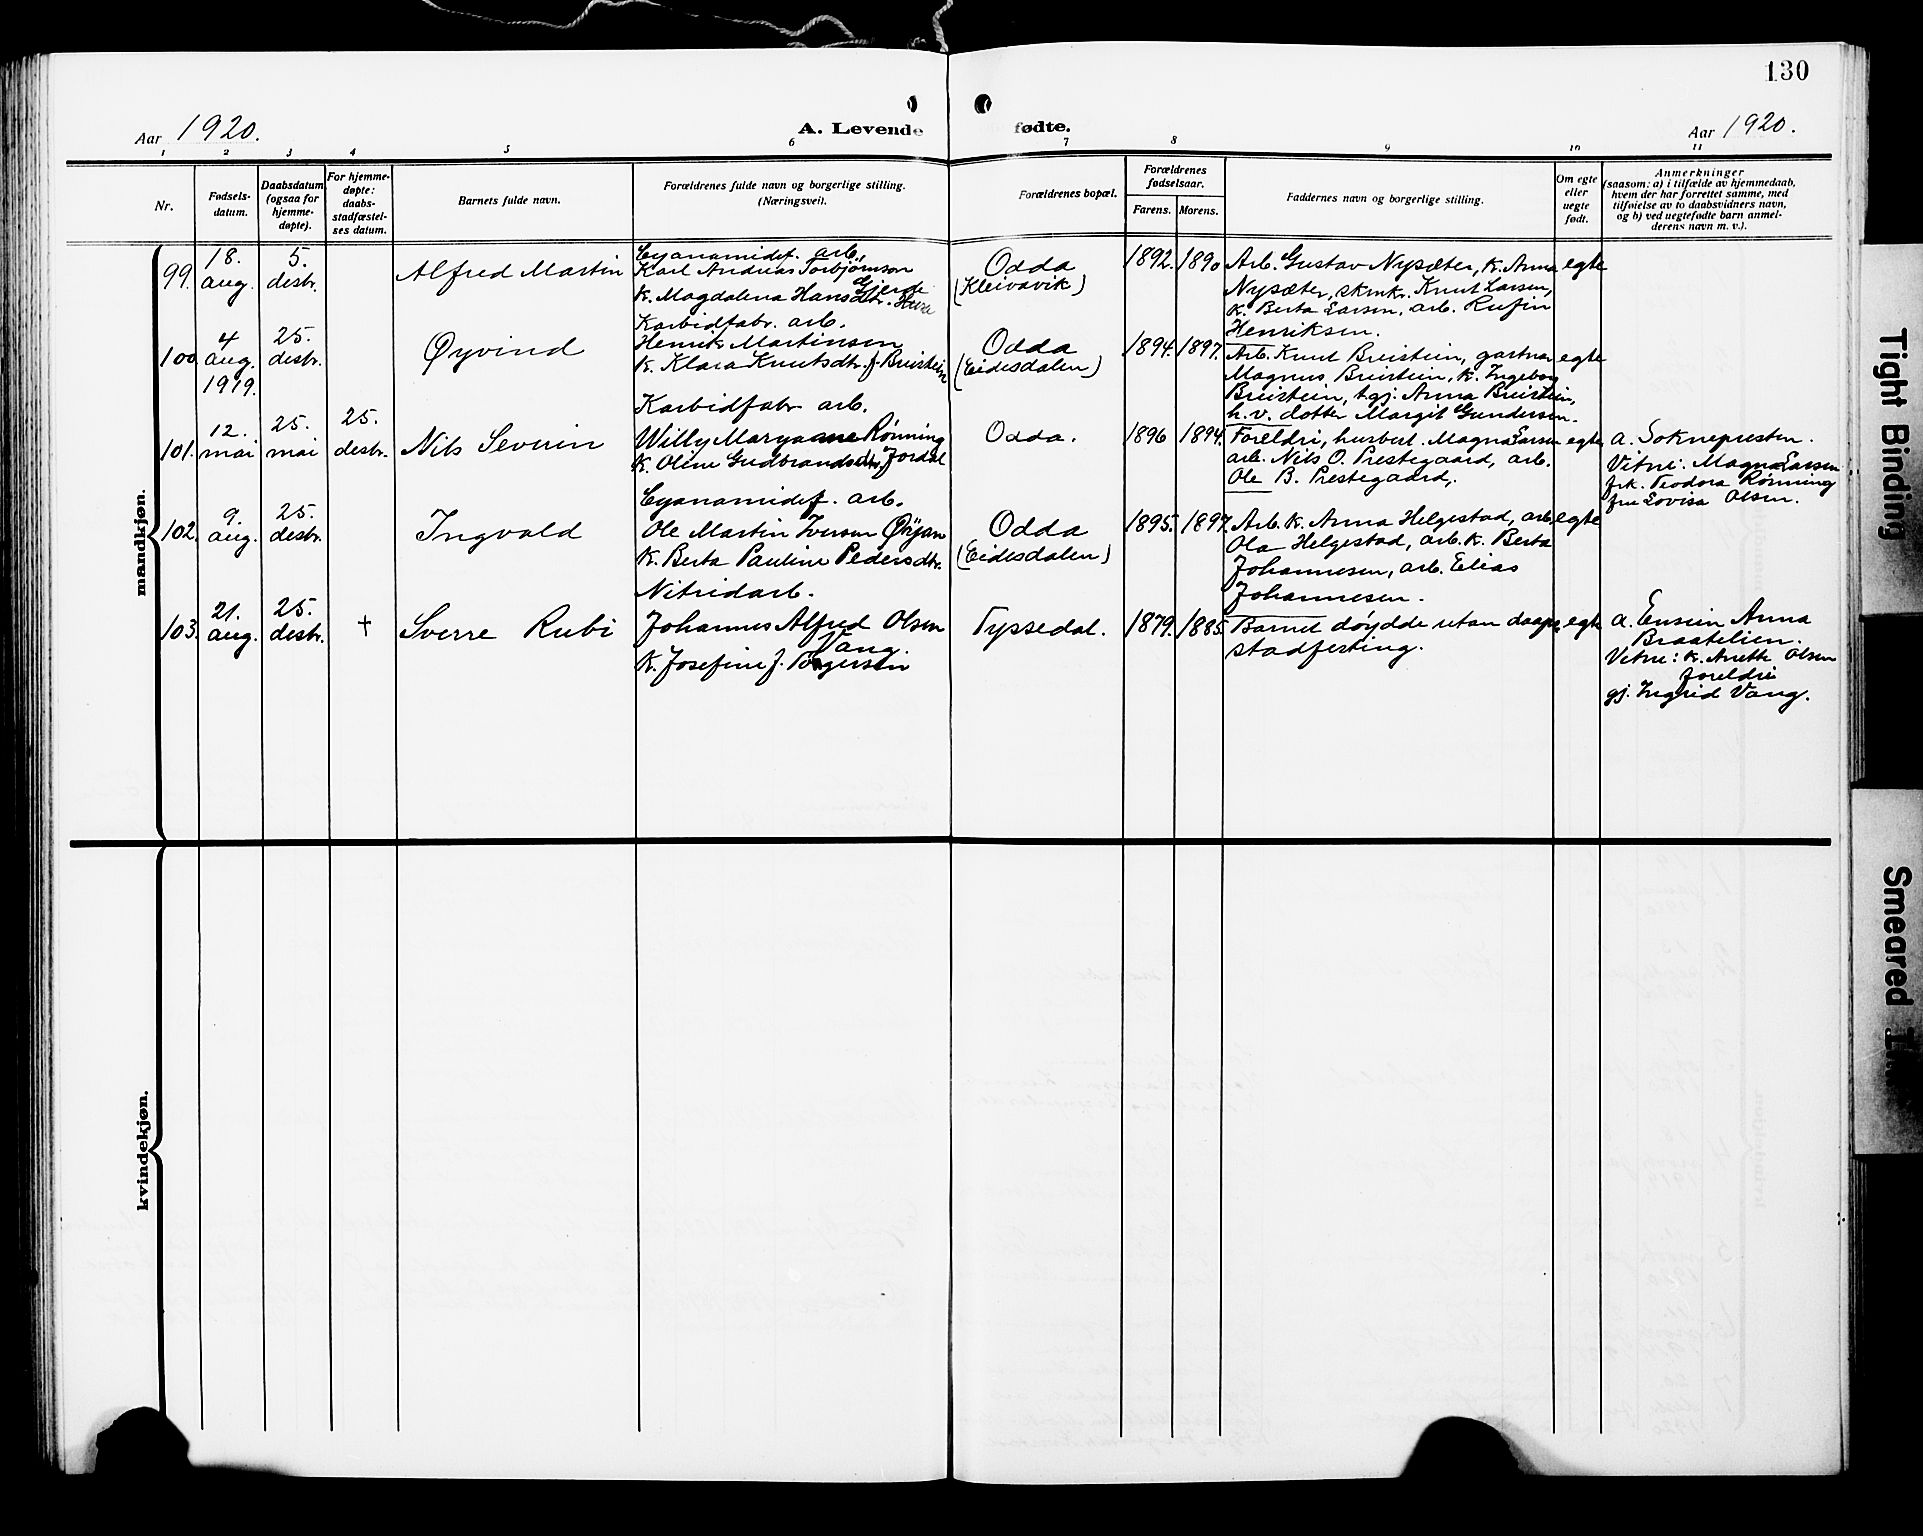 130
Aar 1920.
A. Levende fødte.
Aar 1920.
1 2 3 4 5 6 7 8 9 10 11
Nr.
Fødsels-
datum.
Daabsdatum
(ogsaa for
hjemme-
døpte).
For hjemme-
døpte:
daabs-
stadfæstel-
ses datum.
Barnets fulde navn.
Forældrenes fulde navn og borgerlige stilling.
(Næringsvei).
Forældrenes bopæl.
Forældrenes
fødselsaar.
Farens. Morens.
Faddernes navn og borgerlige stilling.
Om egte
eller
uegte
født.
Anmerkninger
(saasom: a) i tilfælde av hjemmedaab,
hvem der har forrettet samme, med
tilføielse av to daabsvidners navn,
og b) ved uegtefødte barn anmel-
derens navn m. v.).
mandkjøn.
99.
18.
aug.
5.
desbr.
Alfred Martin
Cyanamidf. arb.
Karl Andreas Torbjørnson
Gjerde
k. Magdalena Hansdtr.
Odda
(Kleivavik)
1892. 1890
Arb. Gustav Nysæter, k. Anna
Nysæter, skmkr. Knut Larsen,
k. Berta Larsen, arb. Rufin
Henriksen.
egte
100
4
aug.
1919.
25.
desbr.
Øyvind
Karbidfabr. arb.
Henrik Martinsen
k. Klara Knutsdtr. f. Breistein
Odda
(Eidesdalen)
1894. 1897.
Arb. Knut Breistein, gartnar
Magnus Breistein, k. Ingeborg
Breistein, tgj. Anna Breistein,
h. v. dotter Margit Gundersen.
egte
101.
12.
mai
25.
mai
25.
desbr.
Nils Severin
Karbidfabr arb.
Willy Rønning
k. Oline Gudbrandsdtr. Jordal
Odda.
1896 1894.
Foreldri, husbest. Magna Larsen
arb. Nils O. Prestegaard, arb.
Ole B. Prestegaard,.
egte
a. Soknepresten.
Vitne: Magna Larsen
frk. Teodora Rønning
fru Lovisa Olsen.
102.
9.
aug.
25.
desbr.
Ingvald
Cyanamidf. arb.
Ole Martin Iversen Øyjan
k. Berta Pauline Pedersdtr.
Odda
(Eidesdalen)
1895. 1897.
Arb. k. Anna Helgestad, arb.
Ola Helgestad, arb. k. Berta
Johannesen, arb. Elias
Johannesen.
egte
103.
21.
aug.
25.
desbr.
†
Sverre Rubi
Nitridarb.
Johannes Alfred Olsen
Vang.
k. Josefine f. Torgersen
Tyssedal.
1879. 1885.
Barnet døydde utan daaps
stadfesting.
egte
a. Anna
Braatelien.
Vitne: k. Anette Olsen
foreldri
gj. Ingrid Vang.
kvindekjøn.
Tight Binding
Smeared